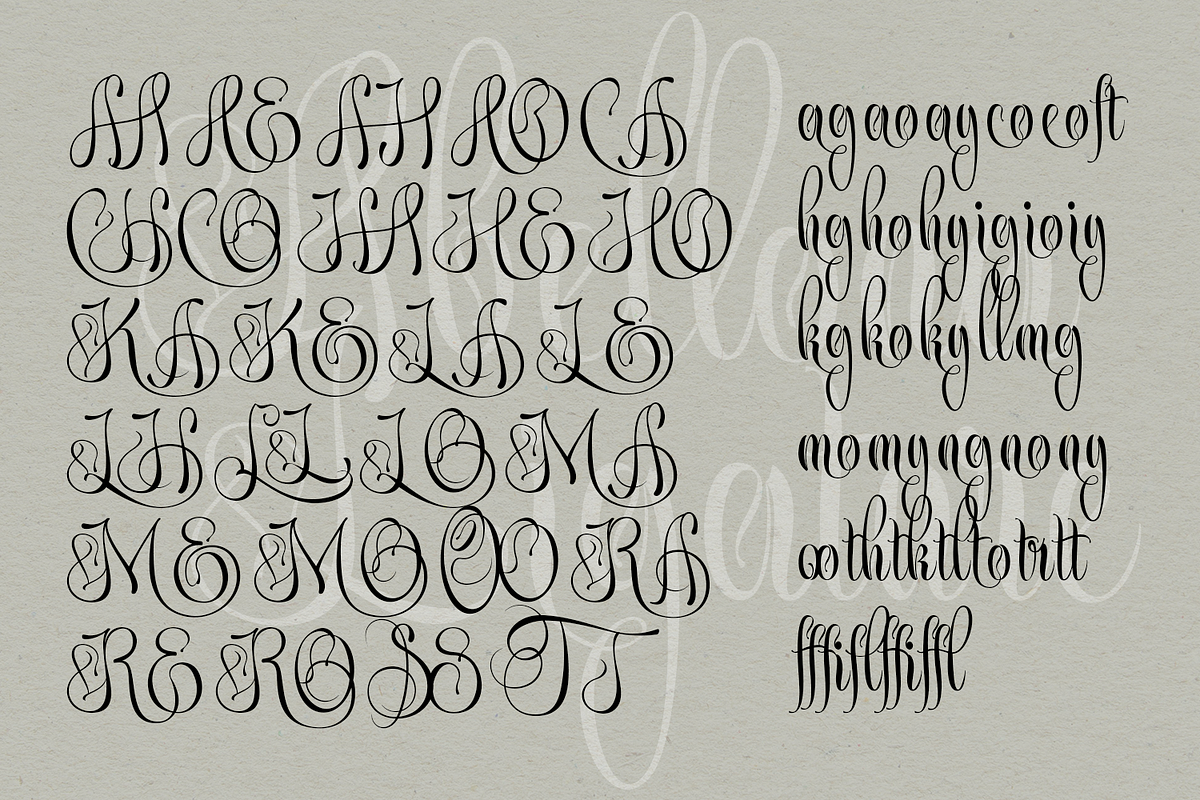 AA AE AH AO CA
CH CO HA HE HO
KA KE LA LE
LH LL LO MA
ME MO OO RA
RE RO SS TT
ag ao ay co eo ft
hg ho hy ig io iy
kg ko ky ll mg
mo my ng no ny
oo th tk tl to tr tt
ff fi fl ffi ffl
Ligature